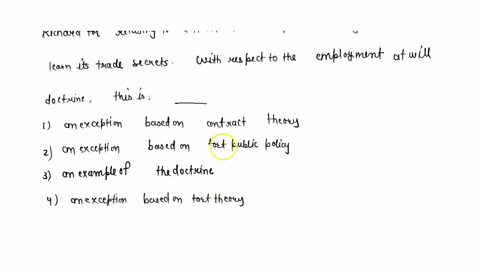 Richard for refusing to
learn its trade secrets. With respect to the employment at will
doctrine, this is: ____
1) an exception based on contract theory
2) an exception based on tort public policy
3) an example of the doctrine
4) an exception based on tort theory